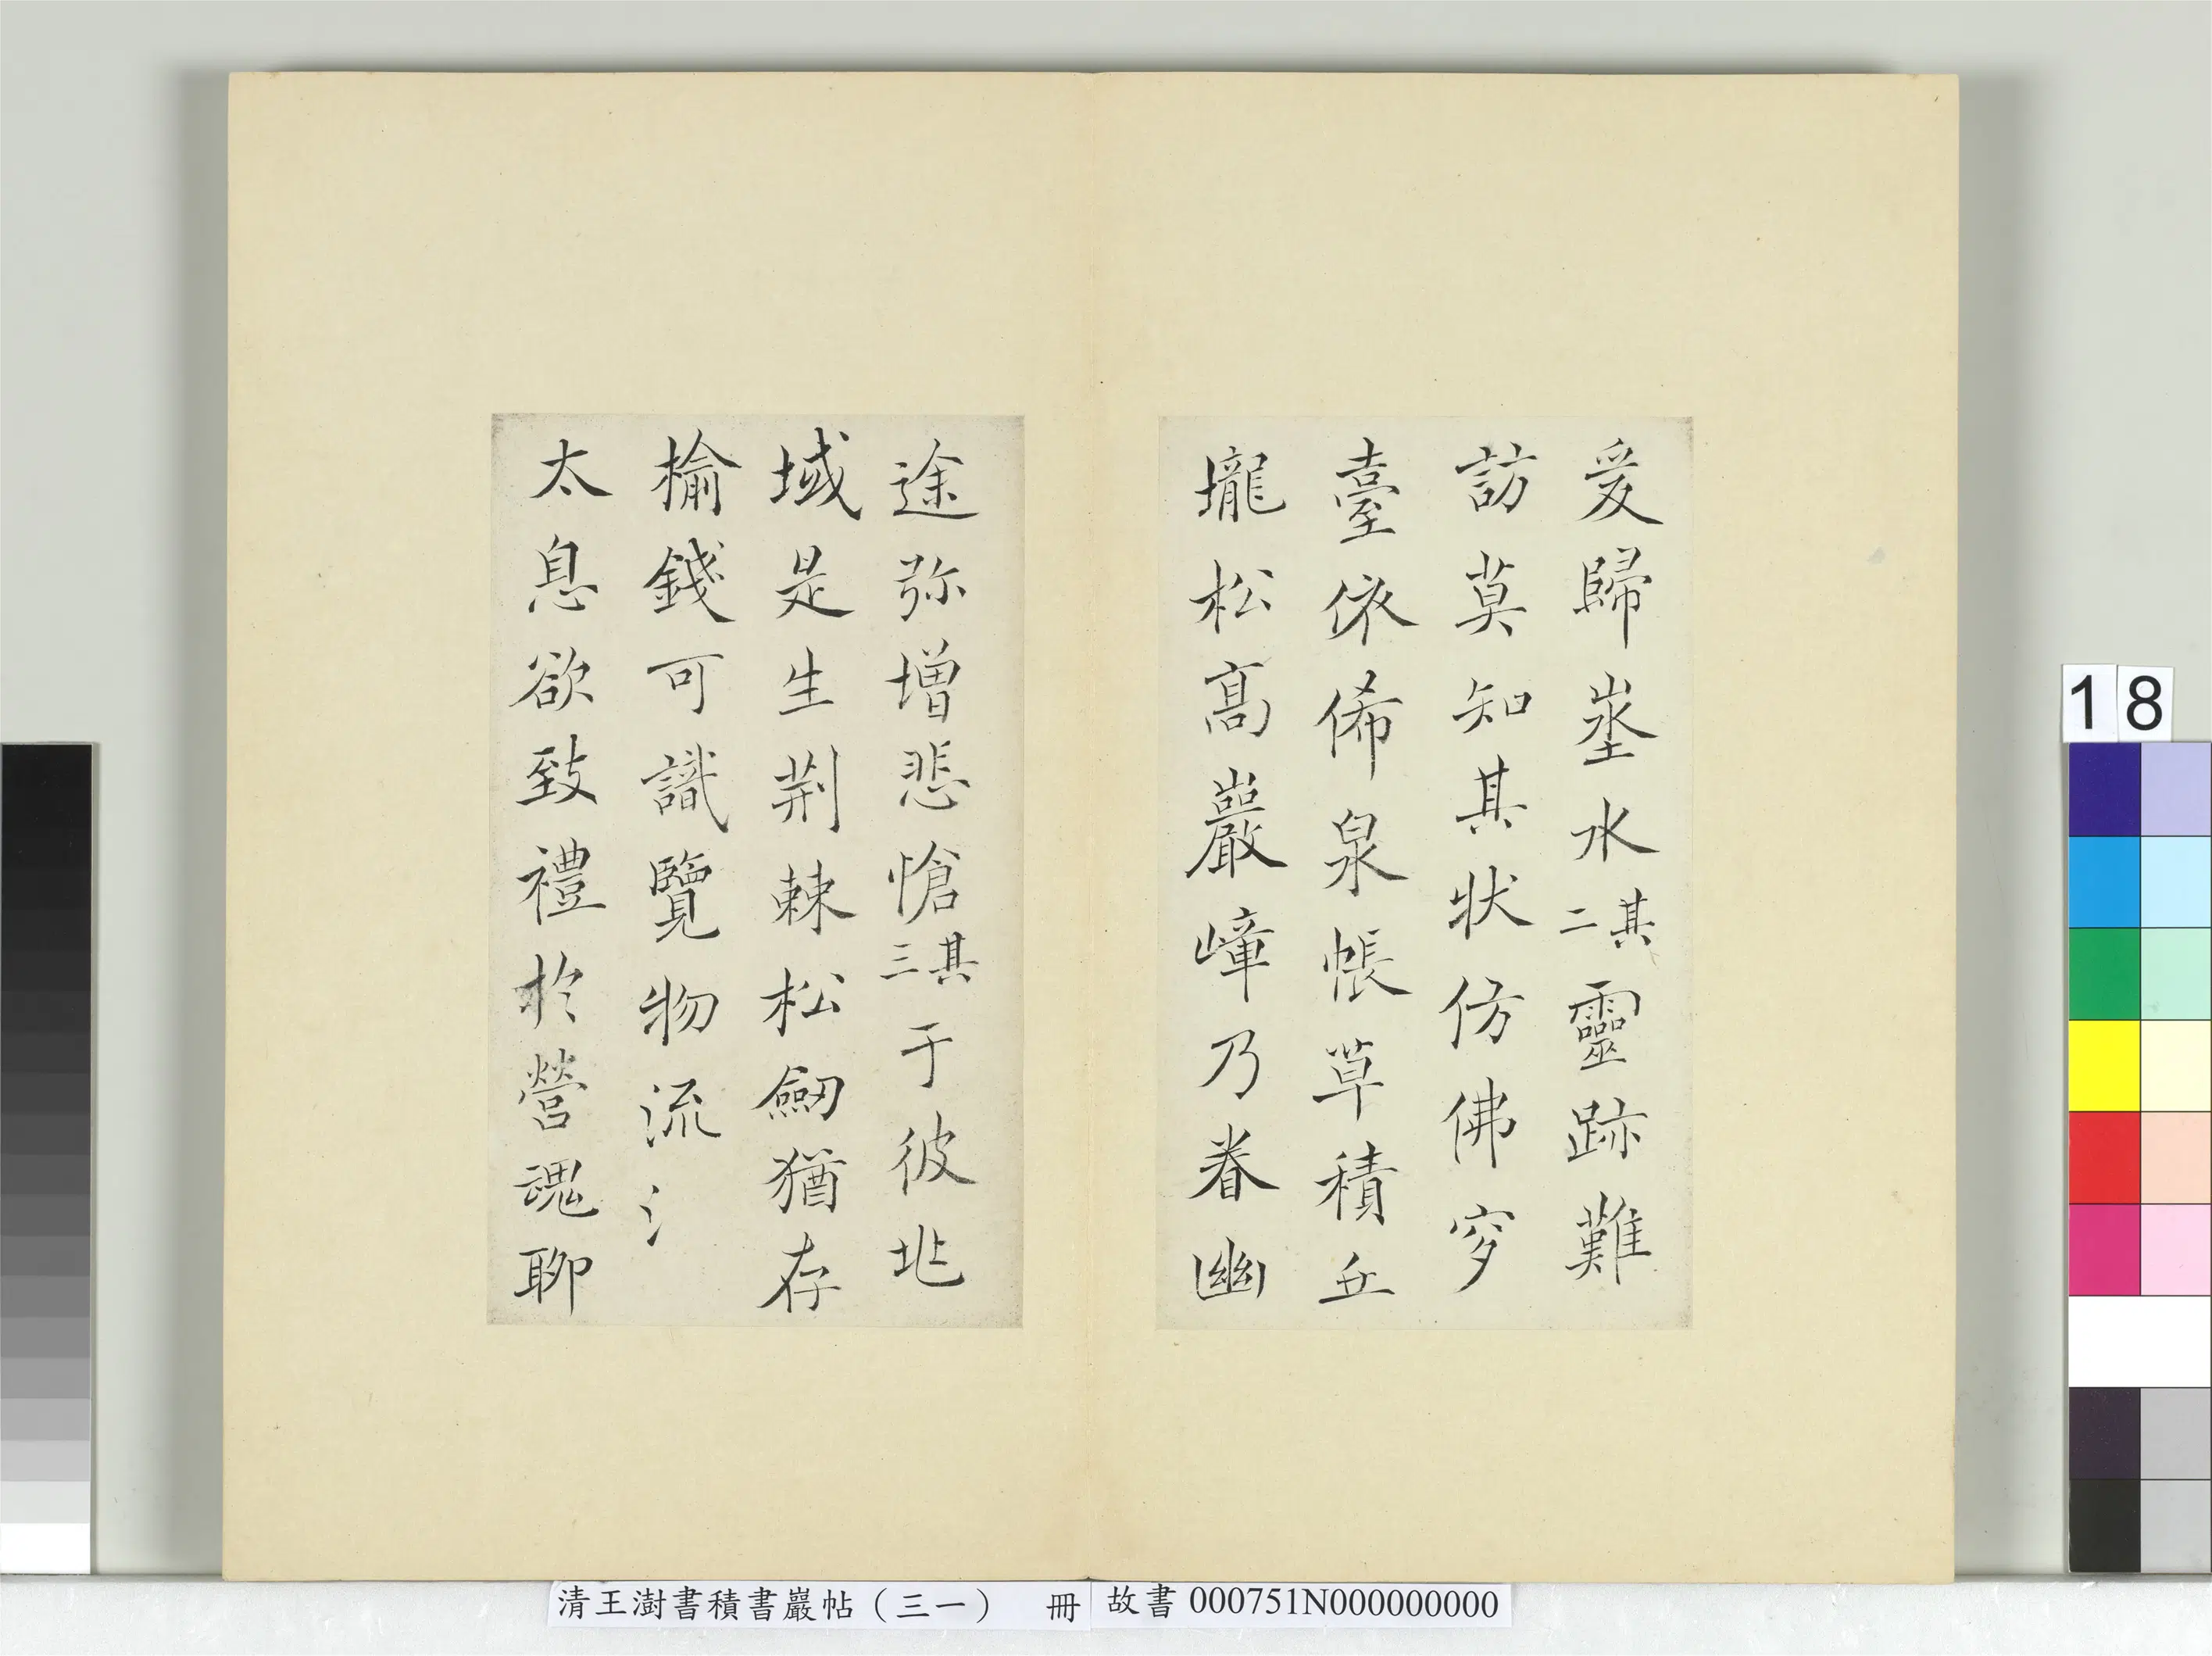 爰歸埊水其二靈跡難
訪莫知其狀仿佛穸
臺依俙泉帳草積丘
壠松高巖嶂乃眷幽
途弥增悲愴其三于彼
域是生荆棘松劒猶存
榆錢可識覽物流氵
太息欲致禮於營魂聊
清王澍書積書巖帖（三一）　冊
故書 000751N000000000
18